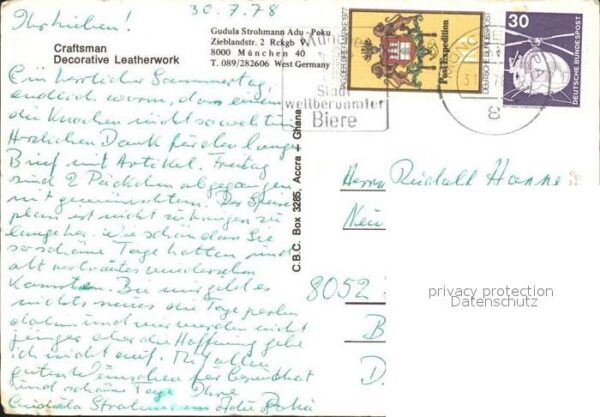 30.7.78
Ihr Lieben!
Craftsman
Decorative Leatherwork
Gudula Strohmann Adu - Poku
Zieblandstr. 2 Rckgb
8000 München 40
T. 089/282606 West Germany
Ein herrlicher Sommertag,
endlich warm, dass einem
die Knochen nicht so weh tun.
Herzlichen Dank für den langen
Brief mit Artikel. Freitag
sind 2 Päckchen abgegangen
mit
ist nicht
Wie schön dass Sie
so schöne Tage hatten und
alt vertrautes wiedersehen
konnten. Bei mir gibt es
nichts neues die Tage
dahin und wir werden nicht
jünger aber die Hoffnung gebe
ich nicht auf. Mit allen
guten Wünschen für Gesundheit
und schöne Tage Ihre
Gudula Strohmann Adu Poku
C.B.C. Box 3285, Accra - Ghana
München
Stadt
weltberühmter
Biere
TAG DER BRIEFMARKE 1977
Post Expedition
DEUTSCHE BUNDESPOST
30
DEUTSCHE BUNDESPOST
8
Herrn Rudolf
Neu
8052
B
D
privacy protection
Datenschutz